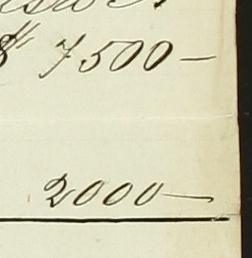 $ 7500 —
2000 —